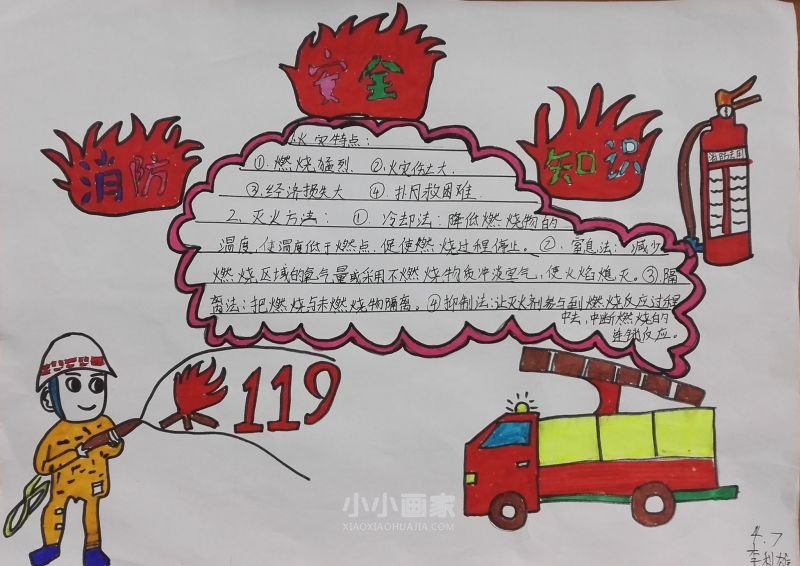 消防
安全
知识
火灾特点：
①.燃烧猛烈. ②.火灾伤亡大.
③.经济损失大 ④.扑救困难.
2、灭火方法： ①.冷却法：降低燃烧物的
温度，使温度低于燃点，促使燃烧过程停止。②.窒息法：减少
燃烧区域的氧气量或采用不燃烧物质冲淡空气，使火焰熄灭。③.隔
离法：把燃烧与未燃烧物隔离。④抑制法：让灭火剂参与到燃烧反应过程
中去，中断燃烧的
连锁反应。
119
小小画家
XIAOXIAOHUAJIA.COM
4.7